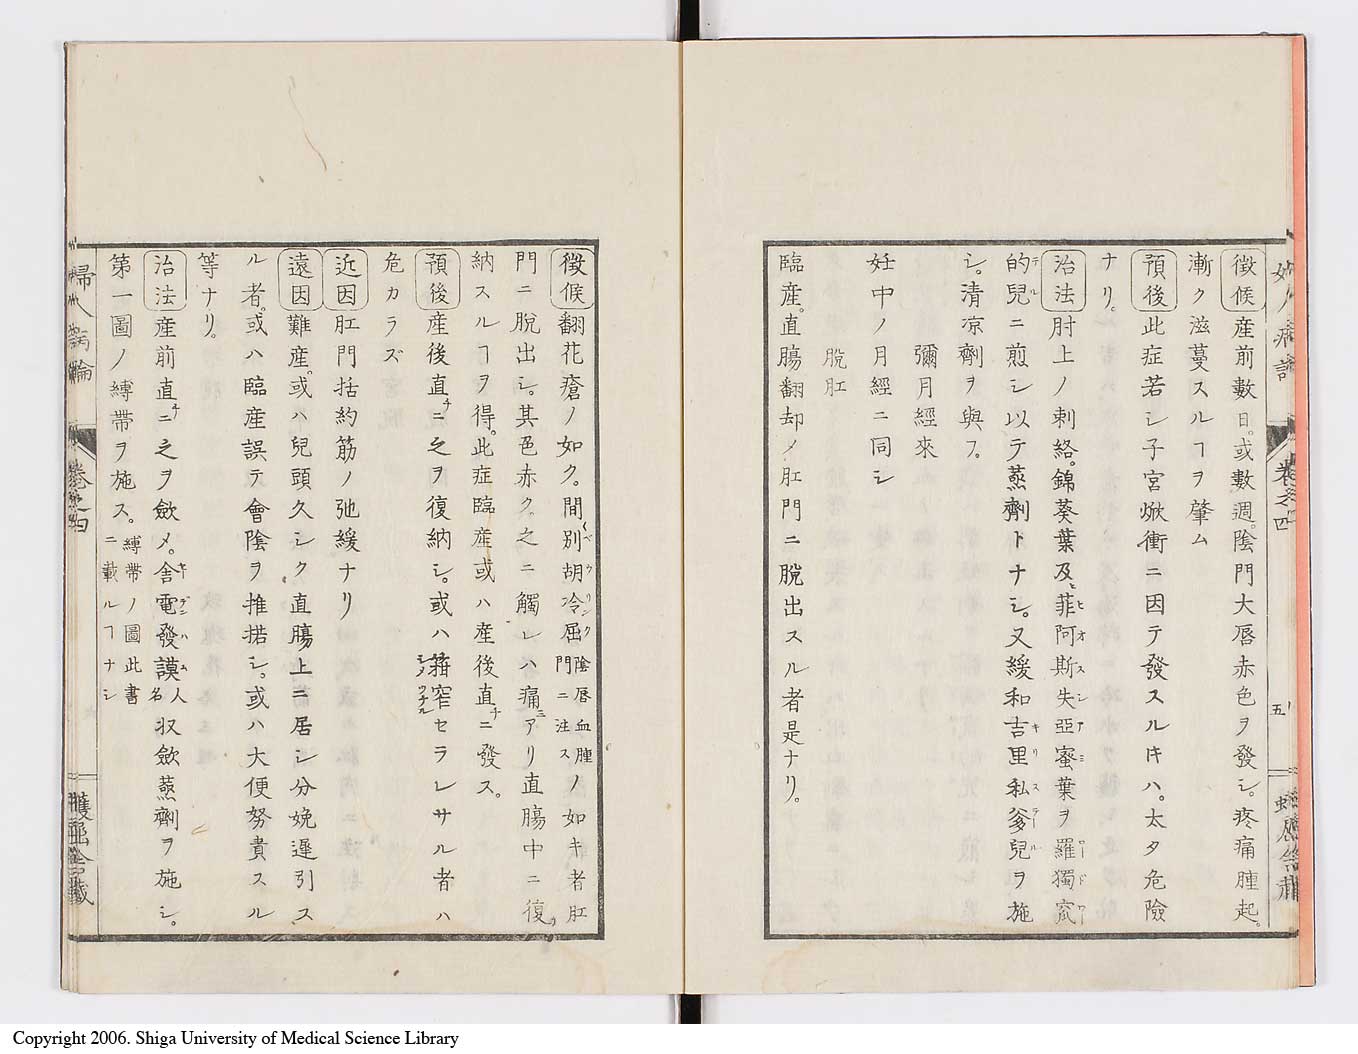 徴候産前數日。或數週。陰門大唇赤色ヲ發シ。疼痛腫起。
漸ク滋蔓スルヿヲ肇ム
預後此症若シ子宮焮衝ニ因テ發スルキハ。太タ危險
ナリ。
治法肘上ノ刺絡。錦葵葉及ヒ菲阿斯失亞蜜葉ヲ羅獨窊
的兒ニ煎シ以テ蒸劑トナシ。又緩和吉里私爹兒ヲ施
シ。清凉劑ヲ與フ。
彌月經來
妊中ノ月經ニ同シ
脫肛
臨産。直膓翻却ノ肛門ニ脫出スル者是ナリ。
徴候翻花瘡ノ如ク。間別胡冷屈陰唇血腫門ニ注スノ如キ者肛
門ニ脫出シ。其色赤ク。之ニ觸レハ痛ミアリ直膓中ニ復
納スルヿヲ得。此症臨産或ハ産後直チニ發ス。
預後産後直チニ之ヲ復納シ。或ハ箝窄セラレサル者ハ
危カラズ
近因肛門括約筋ノ弛緩ナリ
遠因難産。或ハ兒頭久シク直膓上ニ居シ分娩遲引ス
ル者。或ハ臨産誤テ會陰ヲ推掿シ。或ハ大便努責スル
等ナリ。
治法産前直チニ之ヲ斂メ。舍電發謨人名収斂蒸劑ヲ施シ。
第一圖ノ縛帶ヲ施ス。縛帶ノ圖此書ニ載ルヿナシ
婦人病論
卷之四
五
Copyright 2006. Shiga University of Medical Science Library